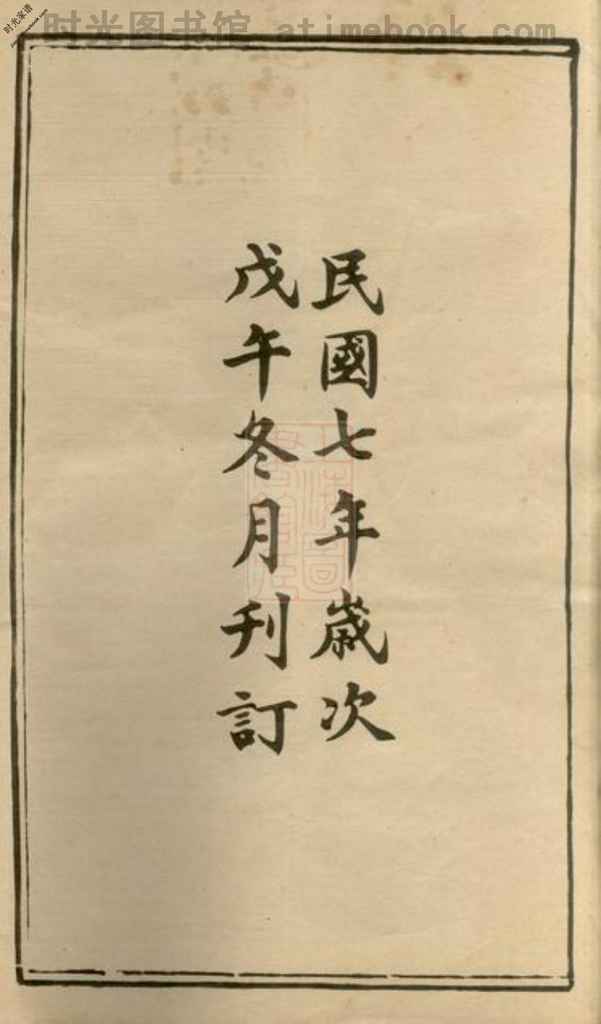 时光图书馆 atimebook.com
时光家谱
民國七年歲次
戊午冬月刊訂